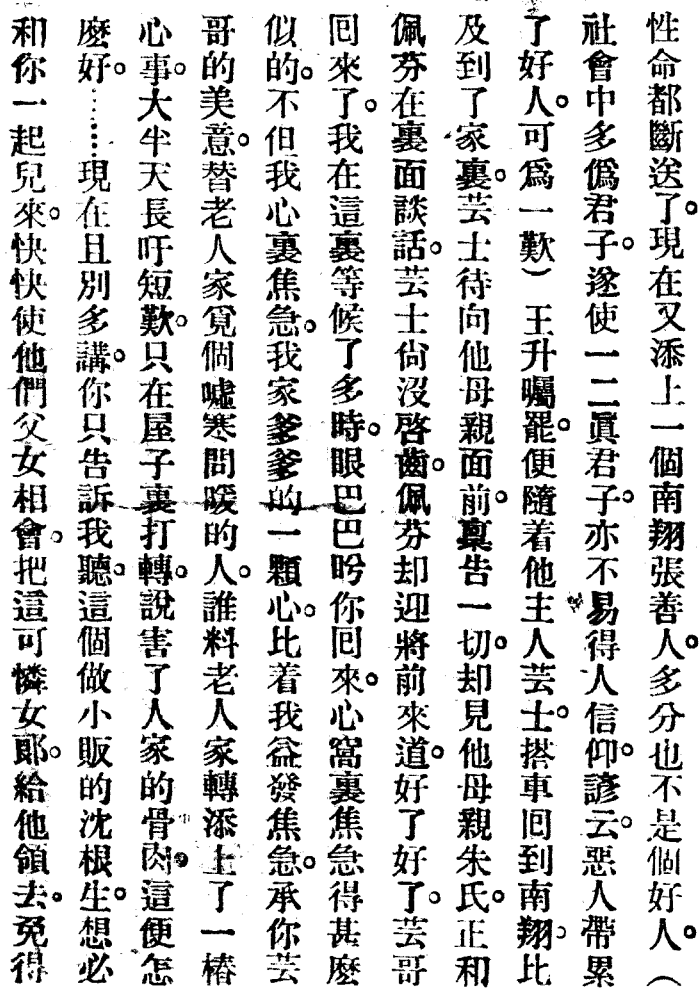 性命都斷送了。現在又添上一個南翔張善人。多分也不是個好人。（
社會中多僞君子。遂使一二眞君子。亦不易得人信仰。諺云。惡人帶累
了好人。可爲一歎）　王升囑罷。便隨着他主人芸士。搭車回到南翔。比
及到了家裏。芸士待向他母親面前。稟告一切。却見他母親朱氏。正和
佩芬在裏面談話。芸士尙沒啓齒。佩芬却迎將前來道。好了好了。芸哥
回來了。我在這裏等候了多時。眼巴巴盼你回來。心窩裏焦急得甚麽
似的。不但我心裏焦急。我家爹爹的一顆心。比着我益發焦急。承你芸
哥的美意。替老人家覓個噓寒問暖的人。誰料老人家轉添上了一樁
心事。大半天長吁短歎。只在屋子裏打轉。說害了人家的骨肉。這便怎
麽好。……現在且別多講。你只告訴我聽。這個做小販的沈根生。想必
和你一起兒來。快快使他們父女相會。把這可憐女郎。給他領去。免得